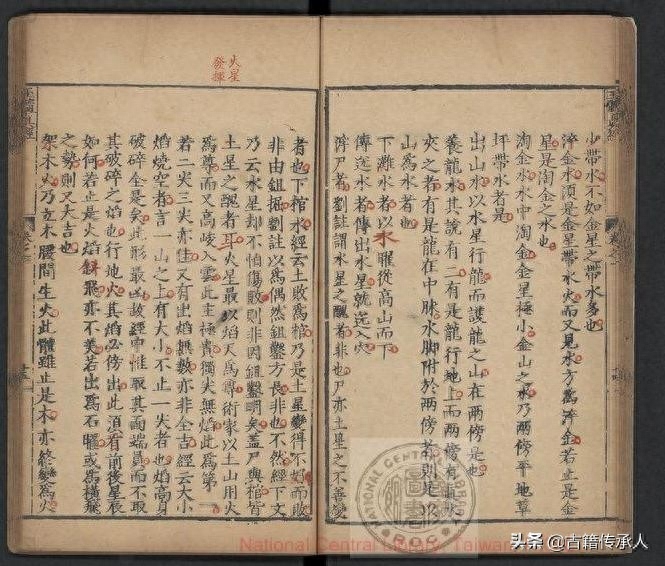 小帶水不如金星之帶水多也
淬金水須是金星帶水火而又見水方爲淬金若止是金
星是淘金之水也
淘金水水中淘金金星極小金山之水乃兩傍平地草
坪帶水者是
出山水以水星行龍而護龍之山在兩傍是也
養龍水其說有二有是龍行地上而兩傍有
夾之者有是龍在中脉水脚附於兩傍者則是以
山爲水者也
下灘水者以水星從高山而下
傳送水者傳出水星就送入穴
浮尸者劉註謂水星之醜者非也尸亦土星之不善變
者也下棺水經云土敗爲棺乃是土星變得不好而敗
非由鉏掘劉註以爲偶然鉏鑿方長非也不然經下文
乃云水星却不怕傷殷則非因鉏鑿明矣盖尸與棺皆
土星之醜者耳火星最以焰天爲尊術家以土山用火
爲尊而又高峻入雲此主極貴獨尖無焰此爲第一
若二尖三尖亦佳又有出焰無數亦非全吉經云大小
焰燒空者言一山之上有大小不止一尖者也焰高身
破碎全是矣此形最凶故經中惟取其面端員而不取
其破碎之焰也行地火其焰必傍出此須看前後星辰
如何若止是火焰斜飛亦不美若出爲石曜或爲橫飛
之勢則又大吉也
架木火乃立木腰間生火此體雖止是木亦終變爲火
火星
發揮
National Central Library, Taiwan
NATIONAL CENTRAL LIBRARY
R.O.C
头条 @古籍传承人